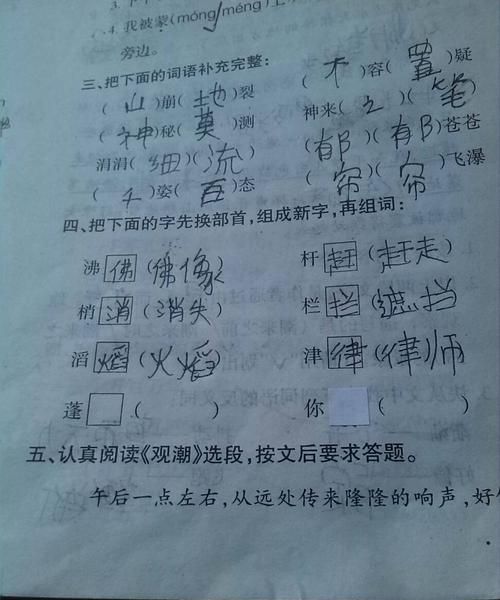 4. 我被蒙(móng méng)上
旁边。
三、把下面的词语补充完整:
(山)崩(地)裂 (不)容(置)疑
(神)秘(莫)测 神来(之)(笔)
涓涓(细)(流) (郁)(郁)苍苍
(千)姿(百)态 (帘)(帘)飞瀑
四、把下面的字先换部首,组成新字,再组词:
沸 佛 (佛像) 杆 赶 (赶走)
梢 消 (消失) 栏 拦 (遮拦)
滔 焰 (火焰) 津 律 (律师)
蓬 ( ) 你 ( )
五、认真阅读《观潮》选段,按文后要求答题。
午后一点左右,从远处传来隆隆的响声,好